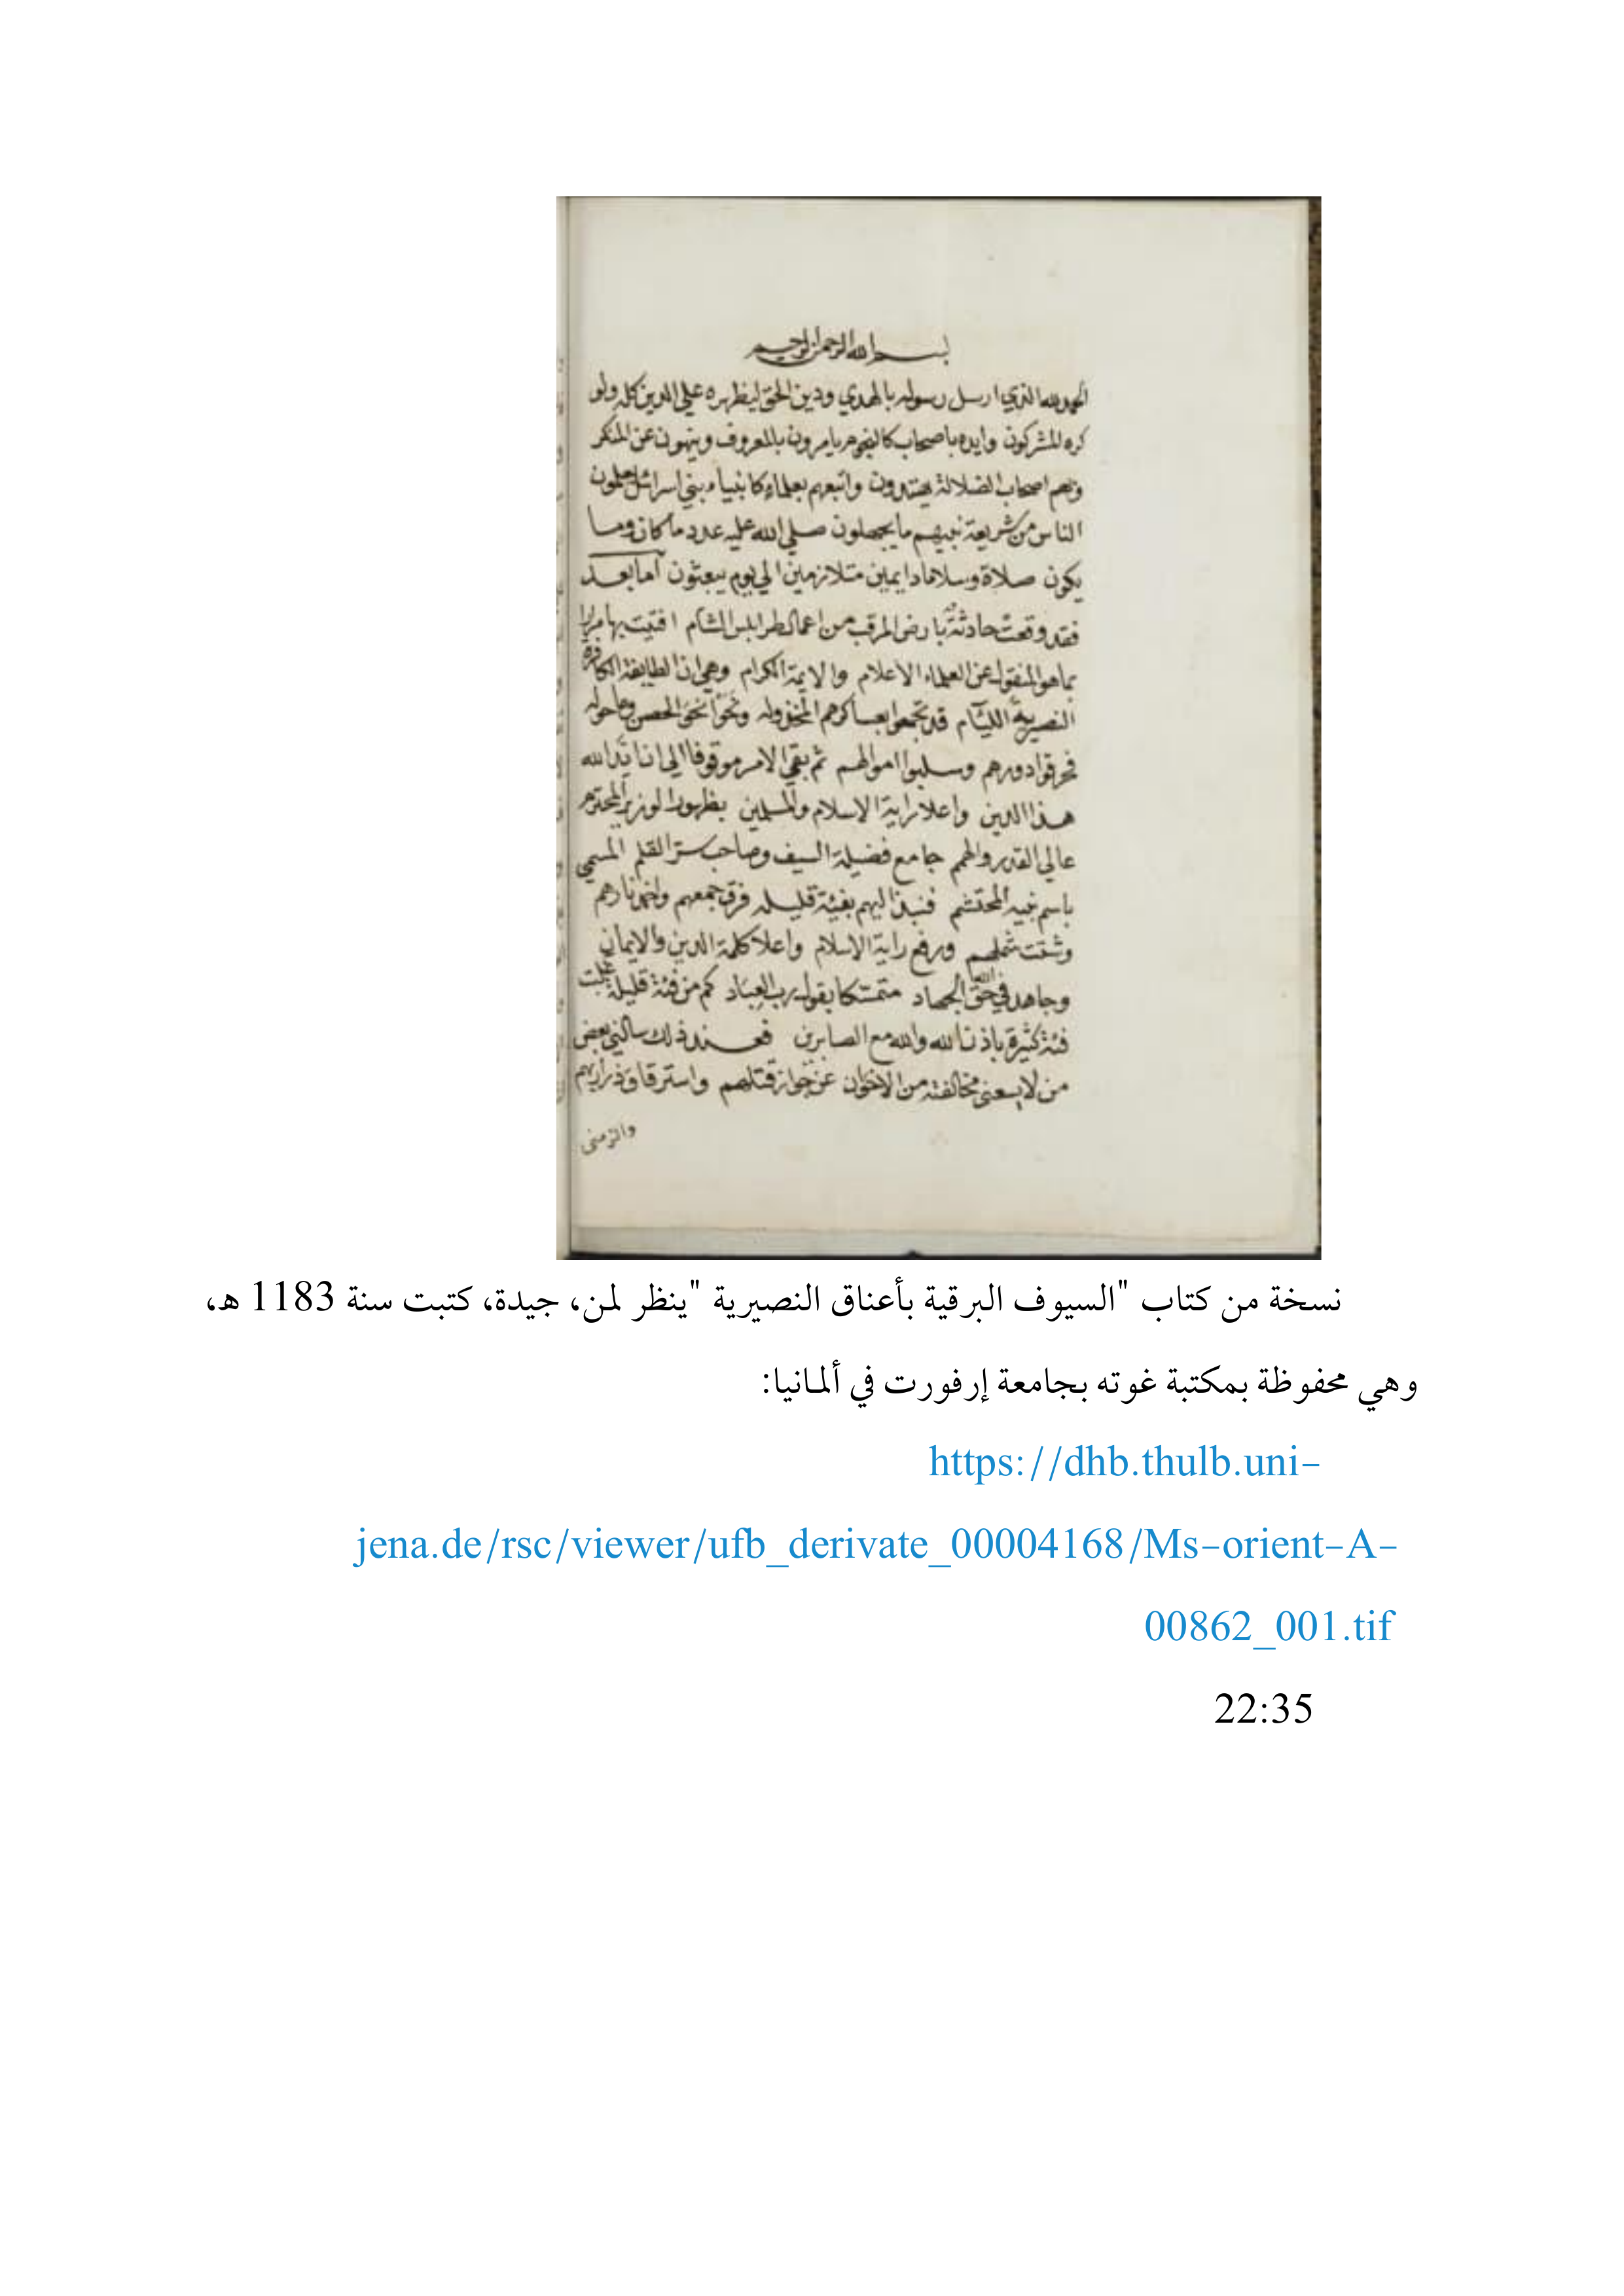 بسم الله الرحمن الرحيم
الحمد لله الذي ارسل رسوله بالهدي ودين الحق ليظهره علي الدين كله ولو
كره المشركون وايده باصحاب كالنجوم يامرون بالمعروف وينهون عن المنكر
وبهم اصحاب الضلالة يهتدون واتبعهم بعلماء كانبياء بني اسرائل يعلمون
الناس من شريعة نبيهم ما يجهلون صلي الله عليه عدد ما كان وما
يكون صلاة وسلاما دايمين متلازمين الي يوم يبعثون اما بعد
فقد وقعت حادثة بارض المرقب من اعمال طرابلس الشام افتيت بها مرارا
بما هو المنقول عن العلماء الاعلام والايمة الكرام وهي ان الطايفة الكافرة
النصيرية الليئام قد تجمعوا بعساكرهم المخذوله ونحوا نحو الحصن وما حوله
فحرقوا دورهم وسلبوا اموالهم ثم بقي الامر موقوفا الي ان ايد الله
هذا الدين واعلا راية الاسلام والمسلمين بظهور الوزير المحترم
عالي القدر والهمم جامع فضيلة السيف وصاحب سر القلم المسمي
باسم نبيه المحتشم فنبذ اليهم بفئة قليله فرق جمعهم واخمد نارهم
وشتت شملهم ورفع راية الاسلام واعلا كلمة الدين والايمان
وجاهد في الله حق الجهاد متمسكا بقول رب العباد كم من فئة قليلة غلبت
فئة كثيرة باذن الله والله مع الصابرين فعند ذلك سالني بعض
من لا يسعني مخالفته من الاخوان عن جواز قتلهم واسترقاق ذراريهم
والزمني
نسخة من كتاب "السيوف البرقية بأعناق النصيرية "ينظر لمن، جيدة، كتبت سنة 1183 هـ،
وهي محفوظة بمكتبة غوته بجامعة إرفورت في ألمانيا:
https://dhb.thulb.uni-
jena.de/rsc/viewer/ufb_derivate_00004168/Ms-orient-A-
00862_001.tif
22:35